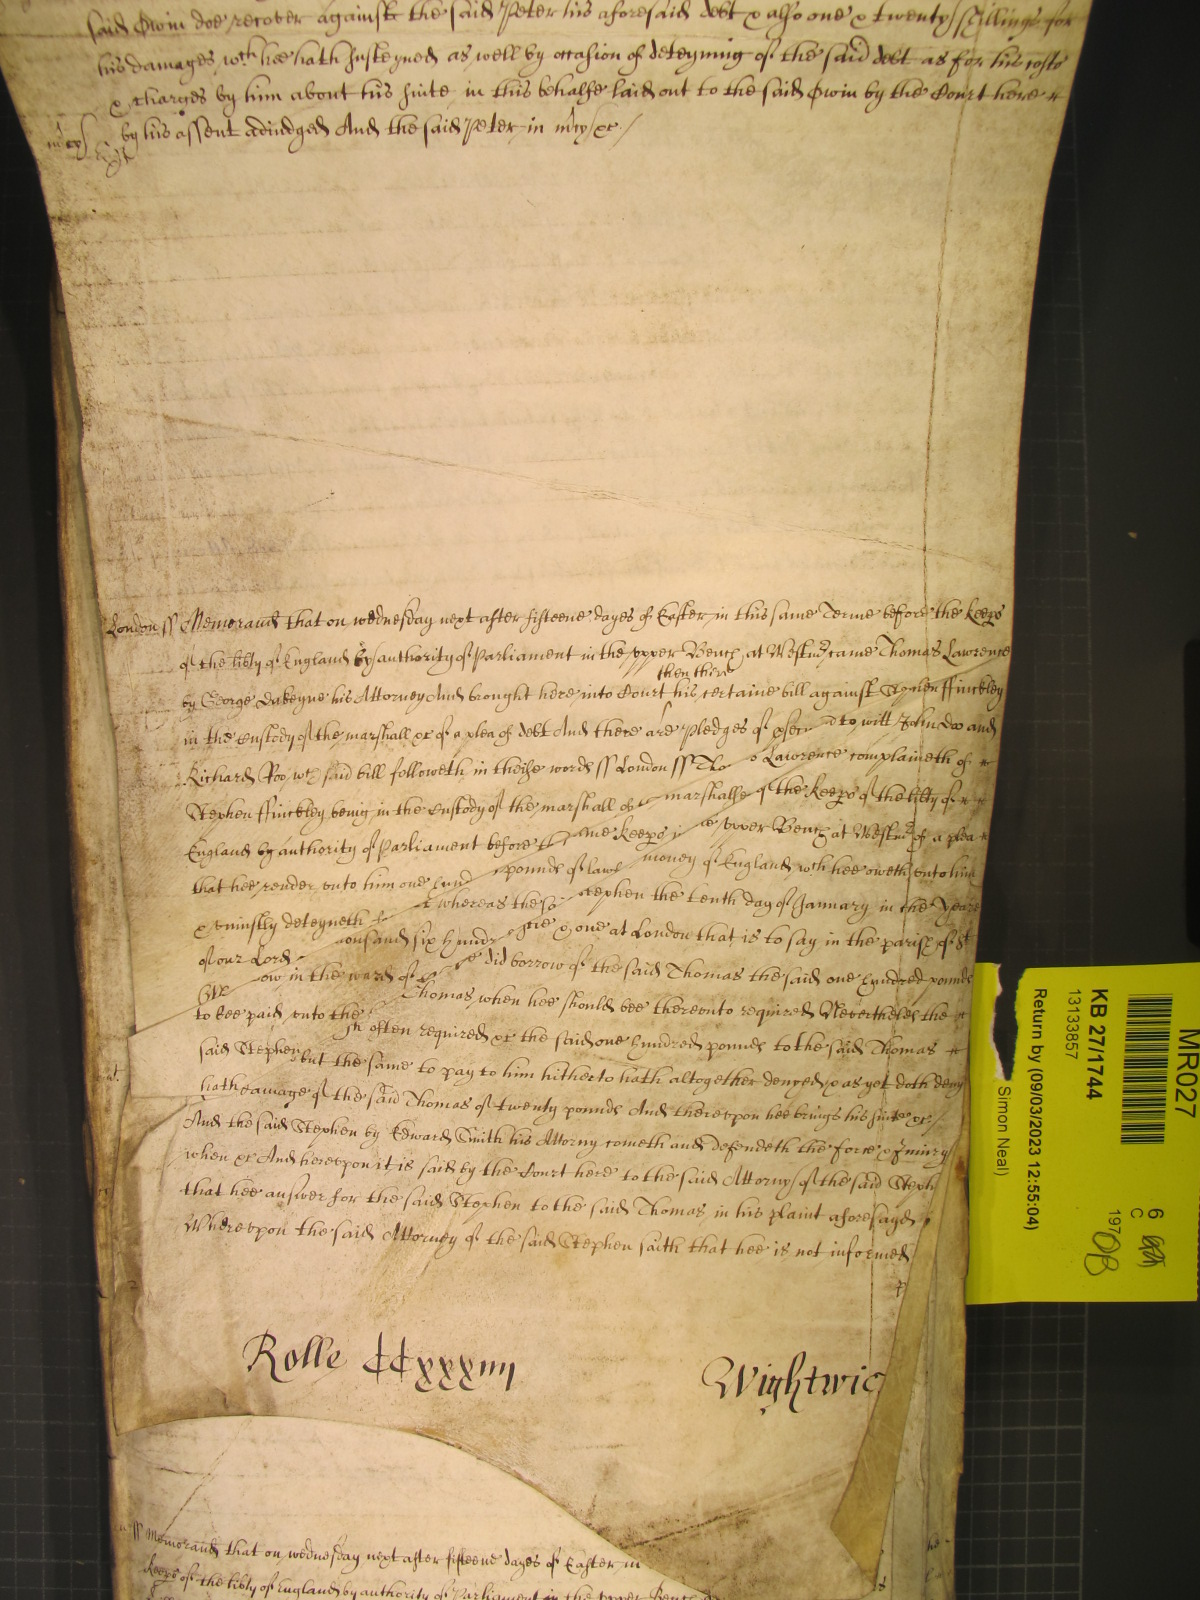 said Owin doe recover against the said Peter his aforesaid debt & also one & twenty shillings for
his damages wch hee hath susteyned as well by occasion of deteyning of the said debt as for his costs
& charges by him about his suite in this behalfe laid out to the said Owin by the Court here
by his assent adiudged And the said Peter in mcy &c
London ss Memorand that on wednesday next after fifteene dayes of Easter in this same Terme before the keeps
of the libty of England by authority of Parliament in the upper Bench at Westmr came Thomas Lawrence
then there
by George Dakeyne his Attorney And brought here into Court his certaine bill against Stephen ffinckley
in the custody of the marshall &c of a plea of debt And there are pledges of to witt John Doo and
Richard Roo wch said bill followeth in theise words ss London ss Tho Lawrence complaineth of
Stephen ffinckley being in the custody of the marshall of marshalsse of the keeps of the libty of
England by authority of Parliament before th ame keeps i e upper Bench at Westmr of a plea
that hee render unto him one hund pounds of law money of England wch hee oweth unto him
& uniustly deteyneth whereas the s tephen the tenth day of January in the Yeare
of our Lord ousand six hundr & one at London that is to say in the parish of St
ow in the ward of did borrow of the said Thomas the said one hundred pounds
to bee paid unto the Thomas when hee should bee thereunto required Neverthelesse the
said Stephen often required &c the said one hundred pounds to the said Thomas
but the same to pay to him hitherto hath altogether denyed & as yet doth deny
hath damage of the said Thomas of twenty pounds And thereupon hee brings his suite &c
And the said Stephen by Edward Smith his Attorny cometh and defendeth the force & iniury
when &c And hereupon it is said by the Court here to the said Attorny of the said Steph
that hee answer for the said Stephen to the said Thomas in his plaint aforesayd
Whereupon the said Attorney of the said Stephen saith that hee is not informed
Rolle CCxxxiiij
Wightwic
ss Memorand that on wednesday next after fifteene dayes of Easter in
keeps of the libty of England by authority of Parliament in the upper Bench
MR027
6
C
197
KB 27/1744
13133857
Return by (09/03/2023 12:55:04)
Simon Neal)